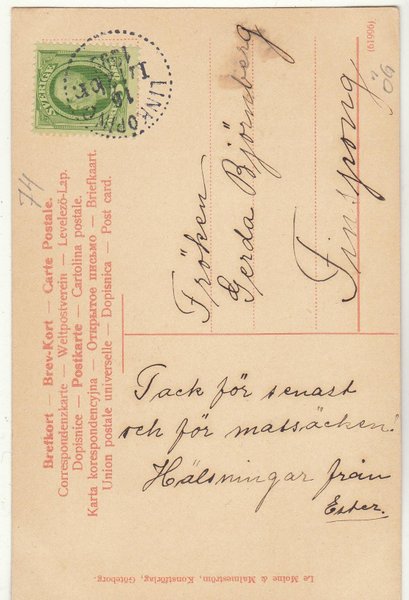 Brefkort — Brev-Kort — Carte Postale.
Correspondenzkarte — Weltpostverein — Levelező-Lap.
Dopisnice — Postkarte — Cartolina postale.
Karta korespondencyjna — Открытое письмо — Briefkaart.
Union postale universelle — Dopisnica — Post card.
SVERIGE
LINKÖPING
(61996)
74
Fröken
Gerda Björnberg
Finspong
Tack för senast
och för matsäcken!
Hälsningar från
Ester.
Le Moine & Malmeström, Konstförlag, Göteborg.